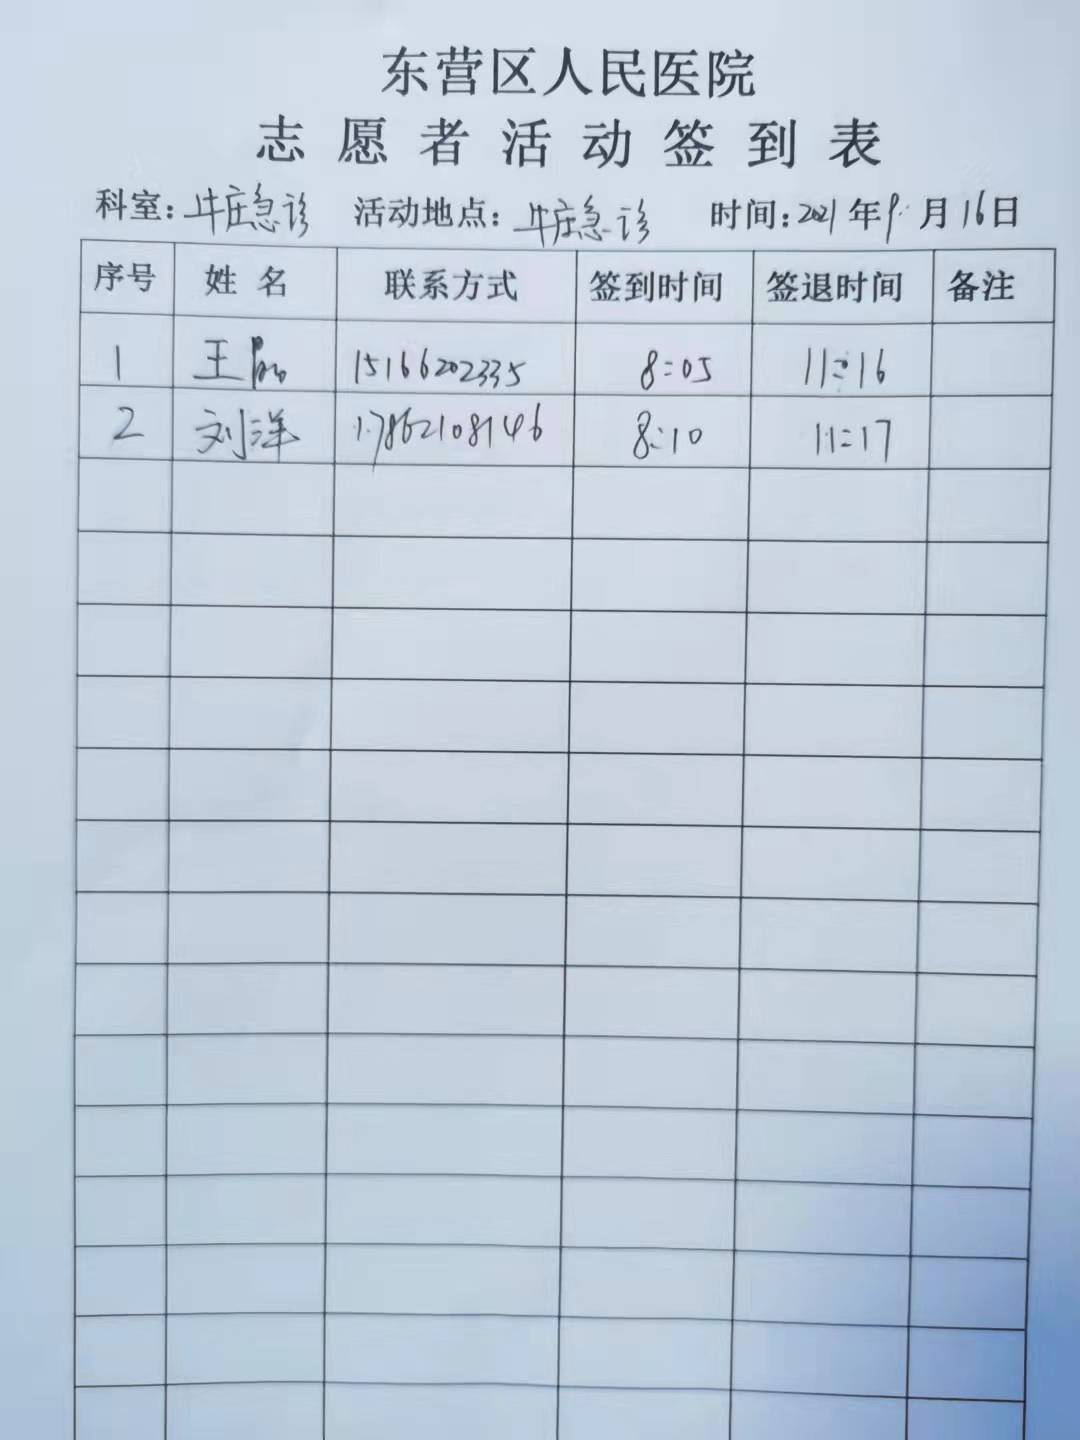 东营区人民医院
志愿者活动签到表
科室：牛庄急诊 活动地点：牛庄急诊 时间：2021年9月16日
序号 姓名 联系方式 签到时间 签退时间 备注
1 王晶 15166202335 8:05 11:16
2 刘洋 17862108146 8:10 11:17